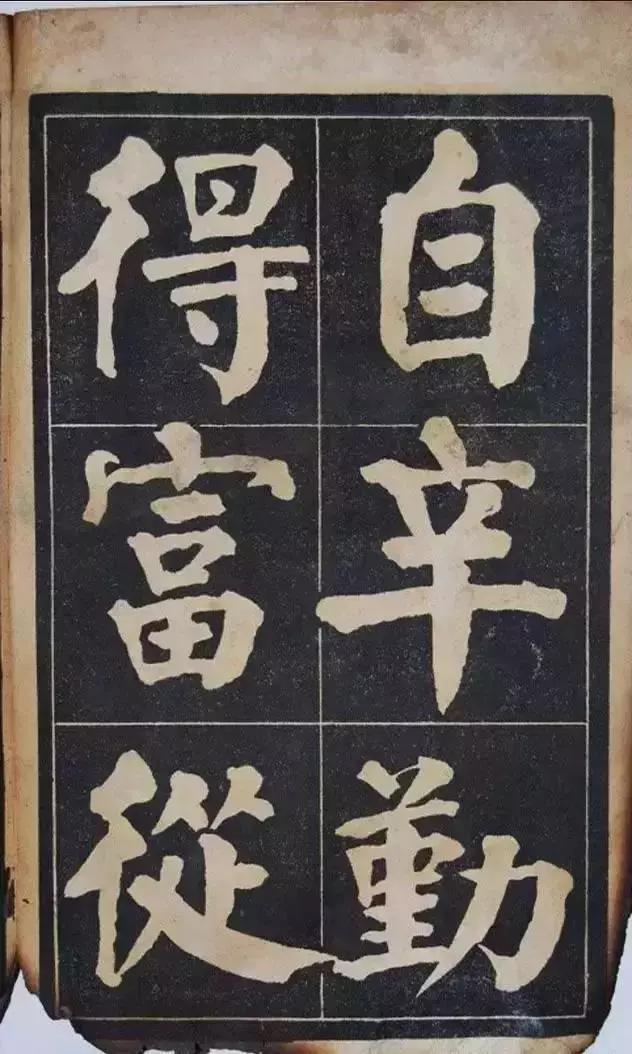 自辛勤
得富從